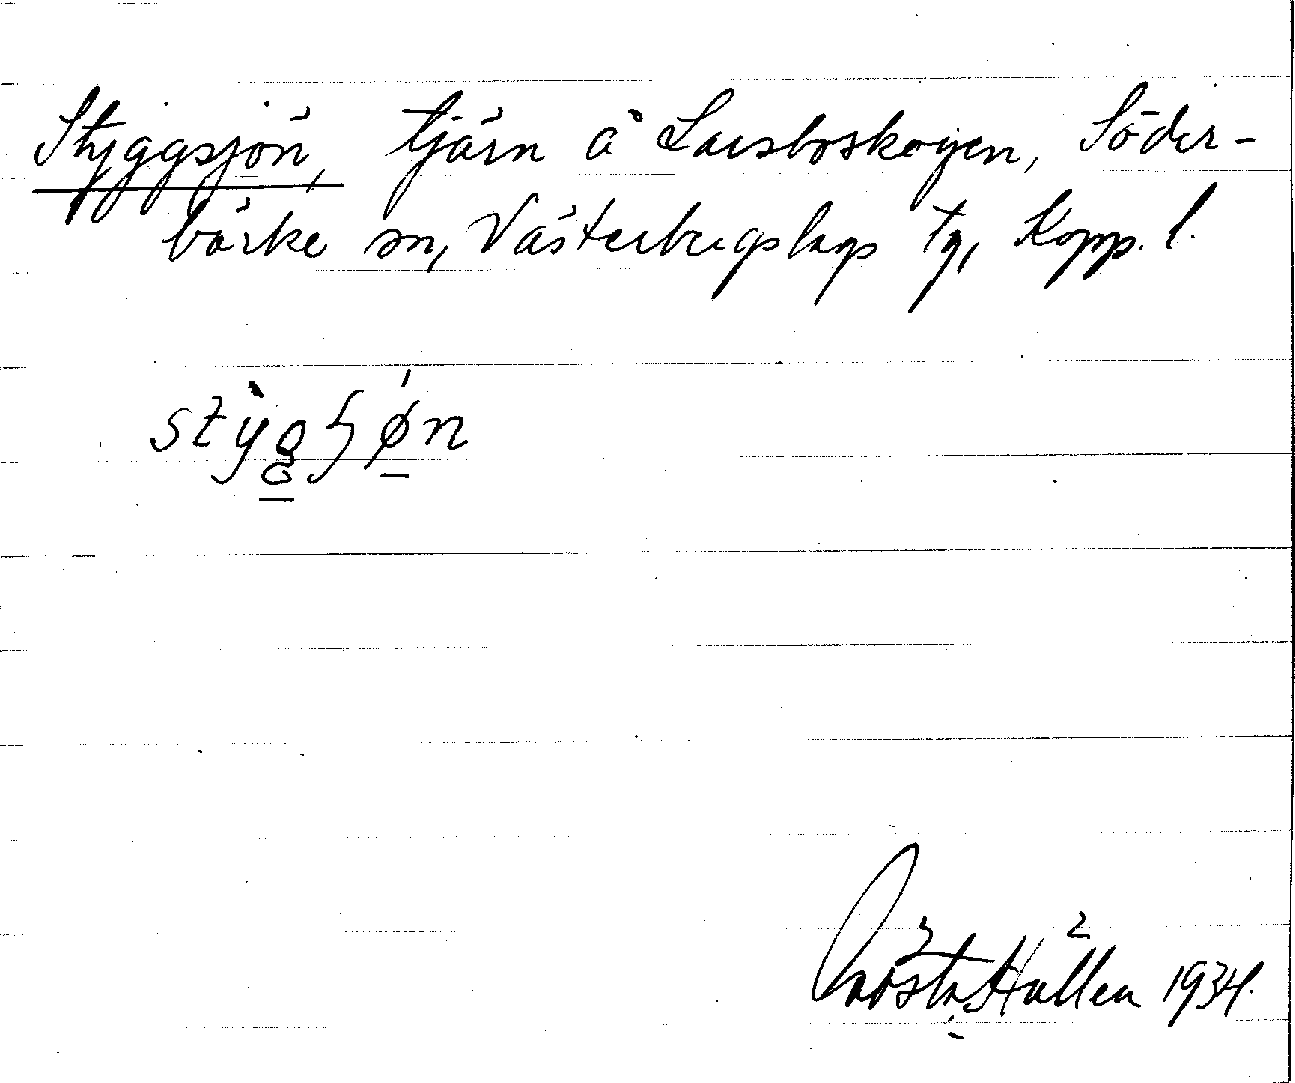 Styggsjön, tjärn å Larsboskogen, Söder-
bärke sn, Västerbergslags tg, Kopp. l.
Gösta Hallén 1934.